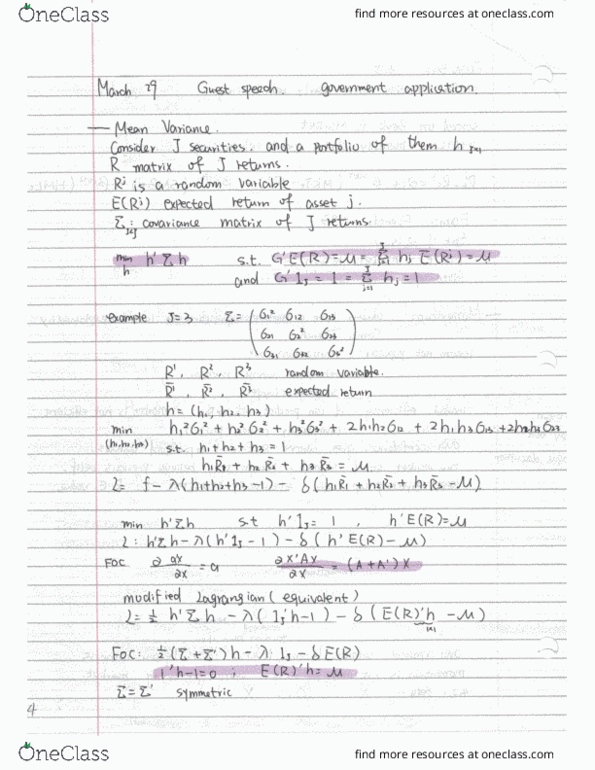 OneClass
find more resources at oneclass.com
March 29 Guest speech. government application
— Mean Variance.
Consider J securities. and a portfolio of them h J×1
R matrix of J returns.
Rʲ is a random variable
E(Rʲ) expected return of asset j.
Σ J×J : covariance matrix of J returns.
min h h'Σh s.t. G'E(R)=μ= Σ_{j=1}^J hj E(Rʲ)=μ
and G'1J = 1 = Σ_{j=1}^J hj = 1
example J=3 Σ= ( б1² б12 б13
б21 б2² б23
б31 б32 б3² )
R¹, R², R³ random variable.
R̄¹, R̄², R̄³ expected return
h = (h1, h2, h3)
min h1²б1² + h2²б2² + h3²б3² + 2h1h2б12 + 2h1h3б13 + 2h2h3б23
(h1,h2,h3) s.t. h1+h2+h3 = 1
h1R̄1 + h2R̄2 + h3R̄3 = μ
L= f - λ(h1+h2+h3-1) - δ(h1R̄1 + h2R̄2 + h3R̄3 - μ)
min h'Σh s.t h'1J = 1, h'E(R)=μ
L: h'Σh - λ(h'1J - 1) - δ(h'E(R) - μ)
FOC ∂ax/∂x = a ∂x'Ax/∂x = (A+A')X
modified Lagrangian (equivalent)
L= ½ h'Σh - λ(1J'h-1) - δ(E(R)'h - μ)
FOC: ½(Σ+Σ')h - λ 1J - δE(R)
1'h-1=0 ; E(R)'h = μ
Σ=Σ' symmetric
4
OneClass
find more resources at oneclass.com